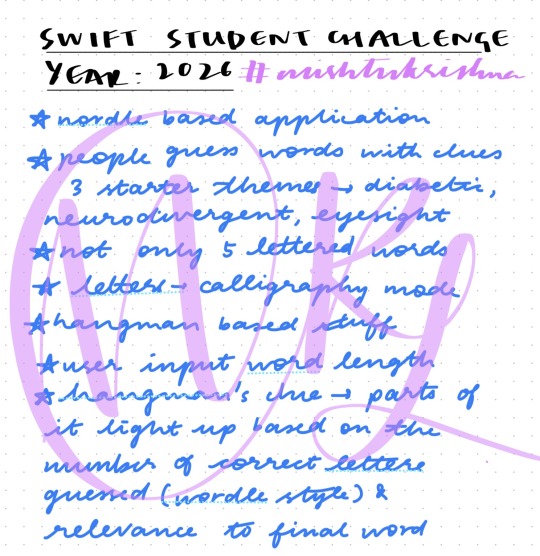 SWIFT STUDENT CHALLENGE
YEAR: 2026 #nushtukrishna
★ wordle based application
★ people guess words with clues
3 starter themes → diabetic,
neurodivergent, eyesight
★ not only 5 lettered words
★ letters → calligraphy mode
★ hangman based stuff
★ user input word length
★ hangman's clue → parts of
it light up based on the
number of correct letters
guessed (wordle style) &
relevance to final word